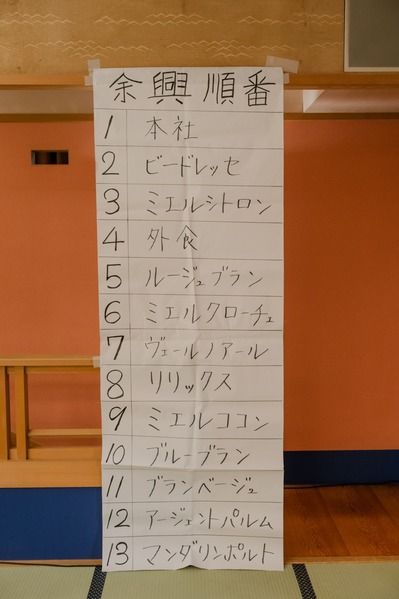 余興順番
1 本社
2 ビードレッセ
3 ミエルシトロン
4 外食
5 ルージュブラン
6 ミエルクローチェ
7 ヴェールノアール
8 リリックス
9 ミエルココン
10 ブルーブラン
11 ブランベージュ
12 アージェントパルム
13 マンダリンポルト